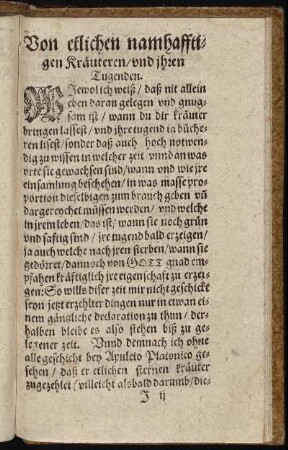 Von etlichen namhafftigen
Kräuteren/ vnd jhren
Tugenden.
WJewol ich weiß/ daß nit allein
eben daran gelegen vnd gnug
sam ist/ wann du dir kräuter
bringen lassest/ vnd ihre tugend in büche
ren lisest/ sonder daß auch hoch notwen
dig zu wissen in welcher zeit vnnd an was
orte sie gewachsen sind/ wann vnd wie jre
einsamlung beschehen/ in was masse pro
portion dieselbigen zum brauch geben vñ
dargereychet müssen werden/ vnd welche
in jrem leben/ das ist/ wann sie noch grün
vnd safftig sind/ jre tugend bald erzeigen/
ja auch welche nach jren sterben/ wann sie
gedörret/ dannoch von GOTT gnad em
pfahen kräfftiglich jre eigenschafft zu erzei
gen: So wills diser zeit mir nicht geschickt
seyn jetzt erzehlter dingen nur in etwan ei
nem gäntzliche declaration zu thun/ der
halben bleibe es also stehen biß zu ge
legener zeit. Vnnd demnach ich ohne
alle geschicht bey Apuleio Platonico ge
sehen/ daß er etlichen sternen kräuter
zugezehlet (villeicht alsbald darumb/ die-
J ij